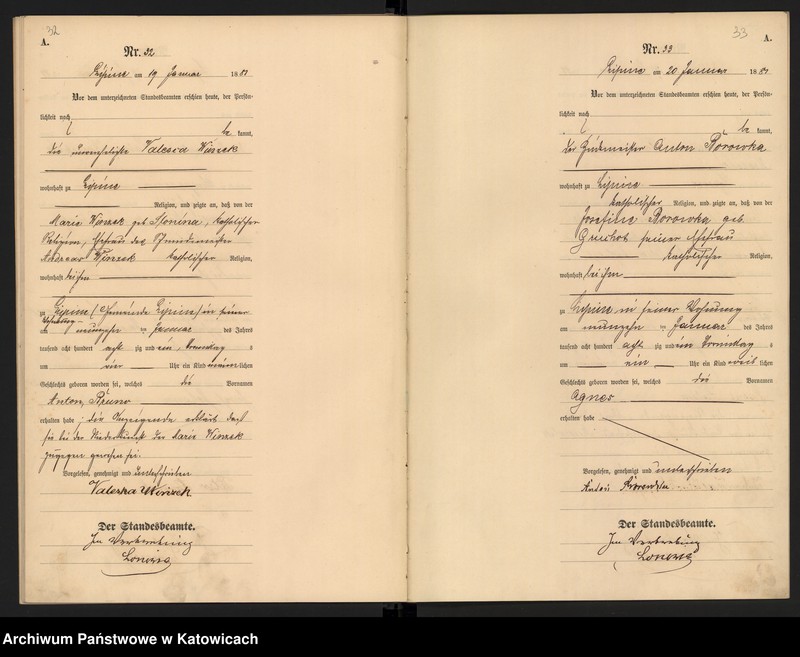 32
A.
Nr. 32
Lipine am 19 Januar 1881
Vor dem unterzeichneten Standesbeamten erschien heute, der Persön-
lichkeit nach
be kannt,
die unverehelichte Valesca Winzek
wohnhaft zu Lipine
Religion, und zeigte an, daß von der
Marie Winzek geb Slonina, katholischer
Religion, Ehefrau des
Andreas Winzek katholischer Religion,
wohnhaft bei ihm
zu Lipine (Gemeinde Lipine) in seiner
Wohnung
am neunzehn ten Januar des Jahres
tausend acht hundert acht zig und ein,
um vier Uhr ein Kind männlichen
Geschlechts geboren worden sei, welches die Vornamen
Anton, Bruno
erhalten habe; die Anzeigende erklärt daß
sie bei der Niederkunft der Marie Winzek
zugegen gewesen sei.
Vorgelesen, genehmigt und unterschrieben
Valeska Winzek
Der Standesbeamte.
In Vertretung
33
A.
Nr. 33
Lipine am 20 Januar 1881
Vor dem unterzeichneten Standesbeamten erschien heute, der Persön-
lichkeit nach
be kannt,
der Anton Borowka
wohnhaft zu Lipine
katholischer Religion, und zeigte an, daß von der
Josefine Borowka geb
seiner Ehefrau
katholischer Religion,
wohnhaft bei ihm
zu Lipine in seiner Wohnung
am neunzehn ten Januar des Jahres
tausend acht hundert acht zig und ein
um ein Uhr ein Kind weiblichen
Geschlechts geboren worden sei, welches die Vornamen
Agnes
erhalten habe
Vorgelesen, genehmigt und unterschrieben
Anton
Der Standesbeamte.
In Vertretung
Archiwum Państwowe w Katowicach